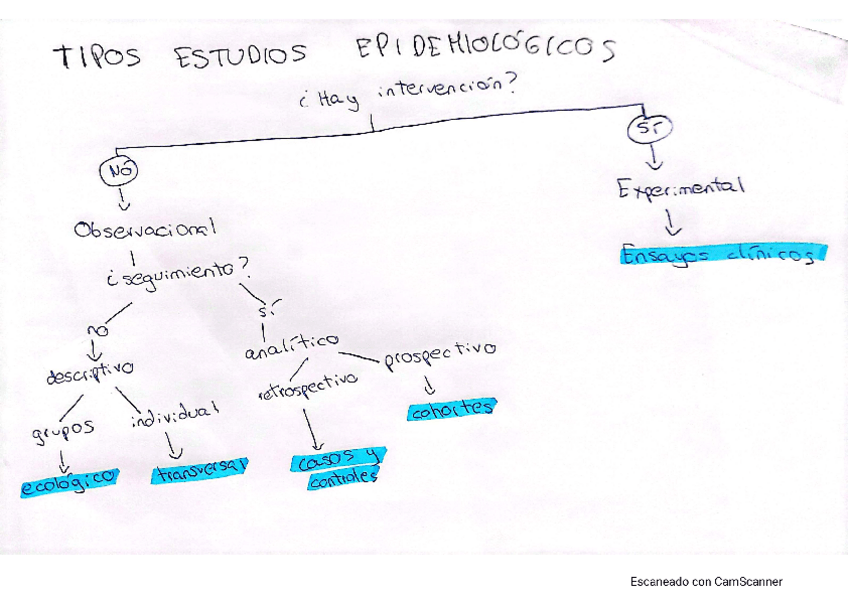 TIPOS ESTUDIOS EPIDEMIOLÓGICOS
¿Hay intervención?
NÓ
SÍ
Experimental
Ensayos clínicos
Observacional
¿seguimiento?
no
sí
descriptivo
analítico
prospectivo
retrospectivo
grupos
individual
cohortes
ecológico
transversal
casos y
controles
Escaneado con CamScanner